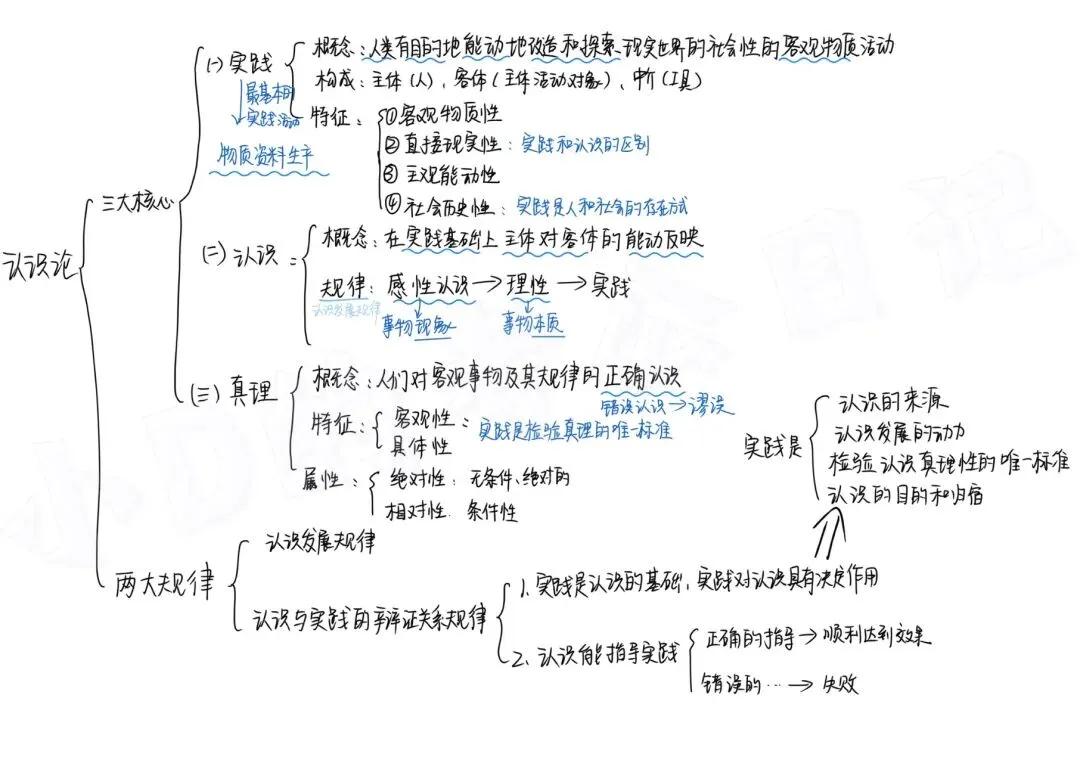 认识论
三大核心
(一) 实践
最基本的
实践活动
物质资料生产
概念：人类有目的地能动地改造和探索现实世界的社会性的客观物质活动
构成：主体(人)、客体(主体活动对象)、中介(工具)
特征：
①客观物质性
②直接现实性：实践和认识的区别
③主观能动性
④社会历史性：实践是人和社会的存在方式
(二) 认识：
概念：在实践基础上主体对客体的能动反映
规律：感性认识→理性→实践
认识发展规律
事物现象
事物本质
(三) 真理
概念：人们对客观事物及其规律的正确认识
错误认识→谬误
特征：
客观性：实践是检验真理的唯一标准
具体性
属性：
绝对性：无条件、绝对的
相对性：条件性
两大规律
认识发展规律
认识与实践的辩证关系规律
1、实践是认识的基础，实践对认识具有决定作用
实践是
认识的来源
认识发展的动力
检验认识真理性的唯一标准
认识的目的和归宿
2、认识能指导实践
正确的指导→顺利达到效果
错误的…→失败